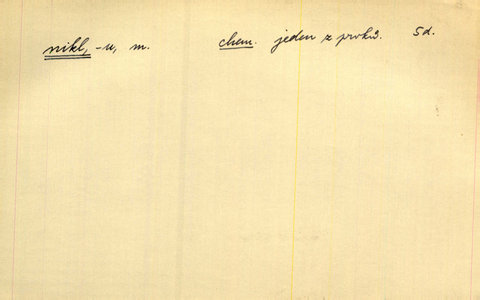 nikl, -u, m. chem. jeden z prvků. 5d.